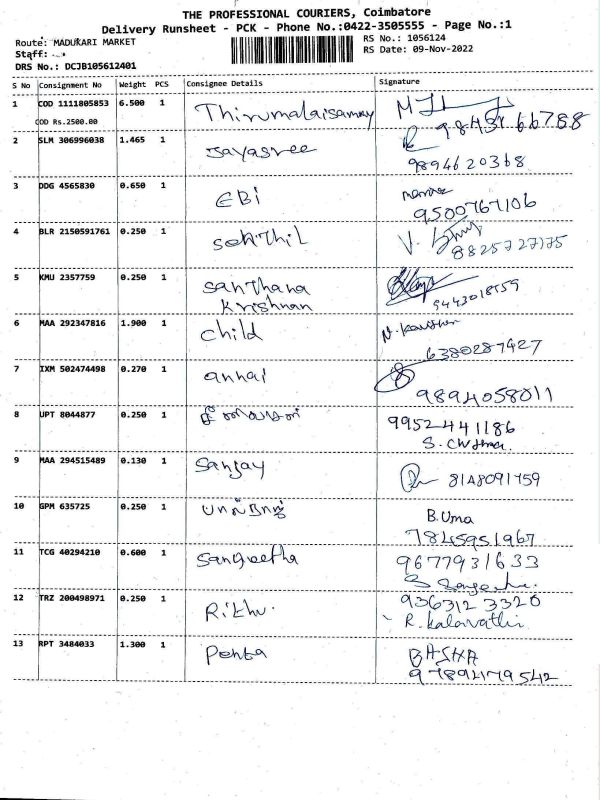 THE PROFESSIONAL COURIERS, Coimbatore
Delivery Runsheet - PCK - Phone No.:0422-3505555 - Page No.:1
Route: MADUKARI MARKET
RS No.: 1056124
Staff:
RS Date: 09-Nov-2022
DRS No.: DCJB105612401
S No Consignment No Weight PCS Consignee Details Signature
1 COD 1111805853 6.500 1 Thirumalaisamy
COD Rs.2500.00
2 SLM 306996038 1.465 1 Jayasree
9894620368
3 DDG 4565830 0.650 1 EBi
9500767106
4 BLR 2150591761 0.250 1 Senthil
8825727175
5 KMU 2357759 0.250 1 Santhana
Krishnan
9443018159
6 MAA 292347816 1.900 1 child
6380287427
7 IXM 502474498 0.270 1 annai
9894058011
8 UPT 8044877 0.250 1 9952441186
9 MAA 294515489 0.130 1 Sanjay
8148091759
10 GPM 635725 0.250 1 B.Uma
7845951967
11 TCG 40294210 0.600 1 Sangeetha 9677931633
12 TRZ 200498971 0.250 1 9363123320
R. Kalavathi
13 RPT 3484033 1.300 1 BASHA